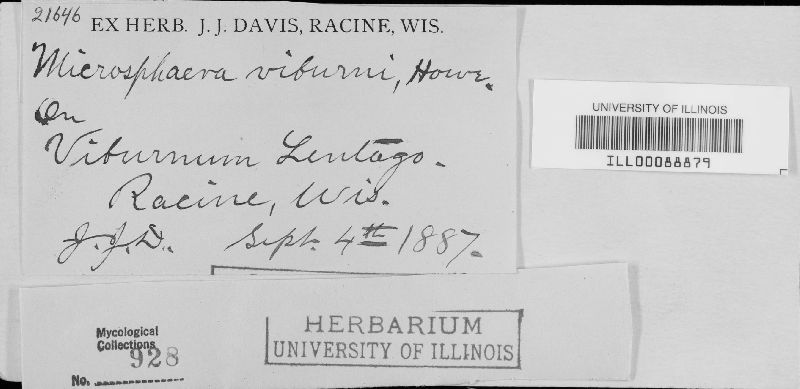 21646
EX HERB. J. J. DAVIS, RACINE, WIS.
Microsphaera viburni, Howe.
On
Viburnum Lentago.
Racine, Wis.
J.J.D. Sept. 4th 1887.
UNIVERSITY OF ILLINOIS
ILL00088879
Mycological
Collections
928
No.
HERBARIUM
UNIVERSITY OF ILLINOIS